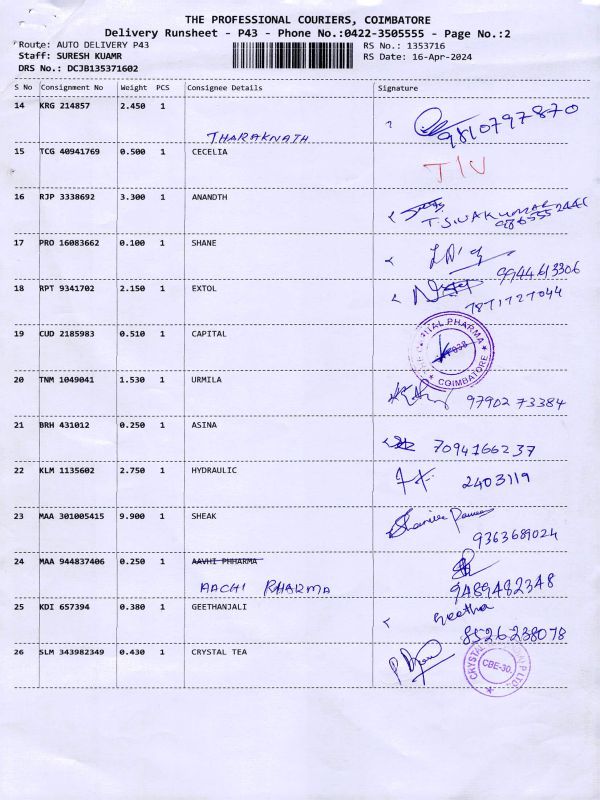 THE PROFESSIONAL COURIERS, COIMBATORE
Delivery Runsheet - P43 - Phone No.:0422-3505555 - Page No.:2
Route: AUTO DELIVERY P43 RS No.: 1353716
Staff: SURESH KUAMR RS Date: 16-Apr-2024
DRS No.: DCJB135371602
S No Consignment No Weight PCS Consignee Details Signature
14 KRG 214857 2.450 1
THARAKNATH 9810797870
15 TCG 40941769 0.500 1 CECELIA
T/V
16 RJP 3338692 3.300 1 ANANDTH
T.SIVAKUMAR
17 PRO 16083662 0.100 1 SHANE
9944613306
18 RPT 9341702 2.150 1 EXTOL
7871727044
19 CUD 2185983 0.510 1 CAPITAL
PHARMA
COIMBATORE
20 TNM 1049041 1.530 1 URMILA
97902 73384
21 BRH 431012 0.250 1 ASINA
7094166237
22 KLM 1135602 2.750 1 HYDRAULIC
2403119
23 MAA 301005415 9.900 1 SHEAK
9363689024
24 MAA 944837406 0.250 1 AAVHI PHHARMA
AACHI PHARMA 9489482348
25 KDI 657394 0.380 1 GEETHANJALI
Geetha
8526238078
26 SLM 343982349 0.430 1 CRYSTAL TEA
CRYSTAL
CBE-30.